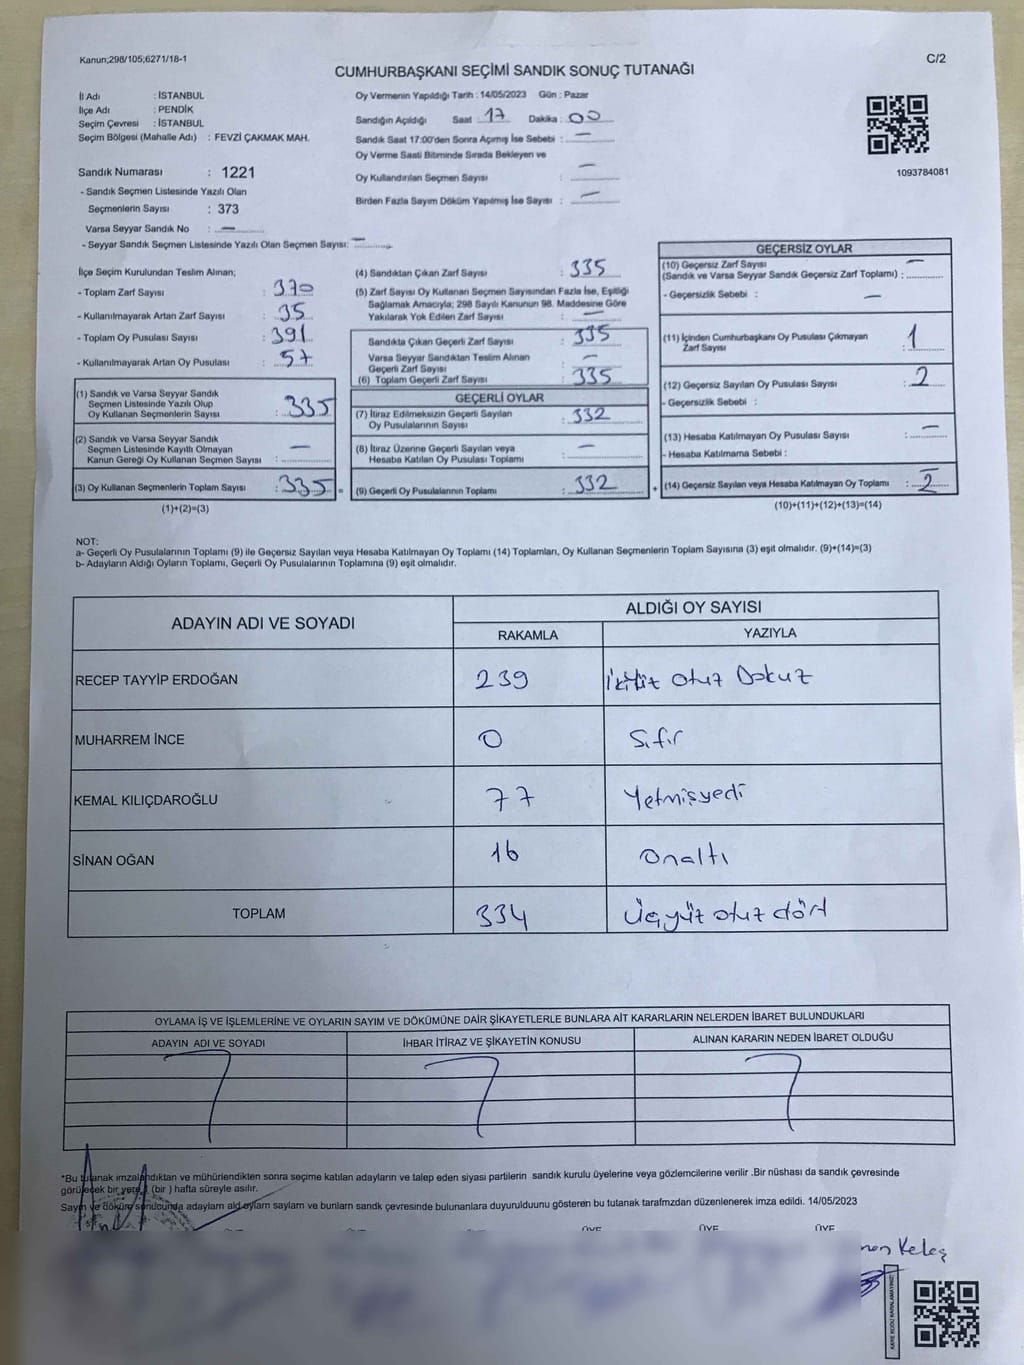 Kanun;298/105;6271/18-1
C/2
CUMHURBAŞKANI SEÇİMİ SANDIK SONUÇ TUTANAĞI
İl Adı : İSTANBUL
İlçe Adı : PENDİK
Seçim Çevresi : İSTANBUL
Seçim Bölgesi (Mahalle Adı) : FEVZİ ÇAKMAK MAH.
Sandık Numarası : 1221
- Sandık Seçmen Listesinde Yazılı Olan
Seçmenlerin Sayısı : 373
Varsa Seyyar Sandık No : —
- Seyyar Sandık Seçmen Listesinde Yazılı Olan Seçmen Sayısı: —
Oy Vermenin Yapıldığı Tarih : 14/05/2023 Gün : Pazar
Sandığın Açıldığı Saat : 17 Dakika : 00
Sandık Saat 17:00'den Sonra Açımış İse Sebebi : —
Oy Verme Saati Bitiminde Sırada Bekleyen ve
Oy Kullandırılan Seçmen Sayısı : —
Birden Fazla Sayım Döküm Yapılmış İse Sayısı : —
1093784081
İlçe Seçim Kurulundan Teslim Alınan;
- Toplam Zarf Sayısı : 370
- Kullanılmayarak Artan Zarf Sayısı : 35
- Toplam Oy Pusulası Sayısı : 391
- Kullanılmayarak Artan Oy Pusulası : 57
(1) Sandık ve Varsa Seyyar Sandık
Seçmen Listesinde Yazılı Olup
Oy Kullanan Seçmenlerin Sayısı : 335
(2) Sandık ve Varsa Seyyar Sandık
Seçmen Listesinde Kayıtlı Olmayan
Kanun Gereği Oy Kullanan Seçmen Sayısı : —
(3) Oy Kullanan Seçmenlerin Toplam Sayısı : 335 =
(1)+(2)=(3)
(4) Sandıktan Çıkan Zarf Sayısı : 335
(5) Zarf Sayısı Oy Kullanan Seçmen Sayısından Fazla İse, Eşitliği
Sağlamak Amacıyla; 298 Sayılı Kanunun 98. Maddesine Göre
Yakılarak Yok Edilen Zarf Sayısı : —
Sandıkta Çıkan Geçerli Zarf Sayısı : 335
Varsa Seyyar Sandıktan Teslim Alınan
Geçerli Zarf Sayısı : —
(6) Toplam Geçerli Zarf Sayısı : 335
GEÇERLİ OYLAR
(7) İtiraz Edilmeksizin Geçerli Sayılan
Oy Pusulalarının Sayısı : 332
(8) İtiraz Üzerine Geçerli Sayılan veya
Hesaba Katılan Oy Pusulası Toplamı : —
(9) Geçerli Oy Pusulalarının Toplamı : 332 +
GEÇERSİZ OYLAR
(10) Geçersiz Zarf Sayısı
(Sandık ve Varsa Seyyar Sandık Geçersiz Zarf Toplamı) : —
- Geçersizlik Sebebi : —
(11) İçinden Cumhurbaşkanı Oy Pusulası Çıkmayan
Zarf Sayısı : 1
(12) Geçersiz Sayılan Oy Pusulası Sayısı : 2
- Geçersizlik Sebebi :
(13) Hesaba Katılmayan Oy Pusulası Sayısı : —
- Hesaba Katılmama Sebebi :
(14) Geçersiz Sayılan veya Hesaba Katılmayan Oy Toplamı : 2
(10)+(11)+(12)+(13)=(14)
NOT:
a- Geçerli Oy Pusulalarının Toplamı (9) ile Geçersiz Sayılan veya Hesaba Katılmayan Oy Toplamı (14) Toplamları, Oy Kullanan Seçmenlerin Toplam Sayısına (3) eşit olmalıdır. (9)+(14)=(3)
b- Adayların Aldığı Oyların Toplamı, Geçerli Oy Pusulalarının Toplamına (9) eşit olmalıdır.
ADAYIN ADI VE SOYADI
ALDIĞI OY SAYISI
RAKAMLA YAZIYLA
RECEP TAYYİP ERDOĞAN 239 ikiyüz otuz Dokuz
MUHARREM İNCE 0 Sıfır
KEMAL KILIÇDAROĞLU 77 Yetmişyedi
SİNAN OĞAN 16 onaltı
TOPLAM 334 Üçyüz otuz dört
OYLAMA İŞ VE İŞLEMLERİNE VE OYLARIN SAYIM VE DÖKÜMÜNE DAİR ŞİKAYETLERLE BUNLARA AİT KARARLARIN NELERDEN İBARET BULUNDUKLARI
ADAYIN ADI VE SOYADI İHBAR İTİRAZ VE ŞİKAYETİN KONUSU ALINAN KARARIN NEDEN İBARET OLDUĞU
*Bu tutanak imzalandıktan ve mühürlendikten sonra seçime katılan adayların ve talep eden siyasi partilerin sandık kurulu üyelerine veya gözlemcilerine verilir .Bir nüshası da sandık çevresinde
görülecek bir yere (bir ) hafta süreyle asılır.
Sayım ve döküm sonucunda adayların ald oyların sayıların ve bunların sandık çevresinde bulunanlara duyurulduunu gösteren bu tutanak tarafmzdan düzenlenerek imza edildi. 14/05/2023
ÜYE ÜYE ÜYE
Keleş
KARE KODU KARALAMAYINIZ!